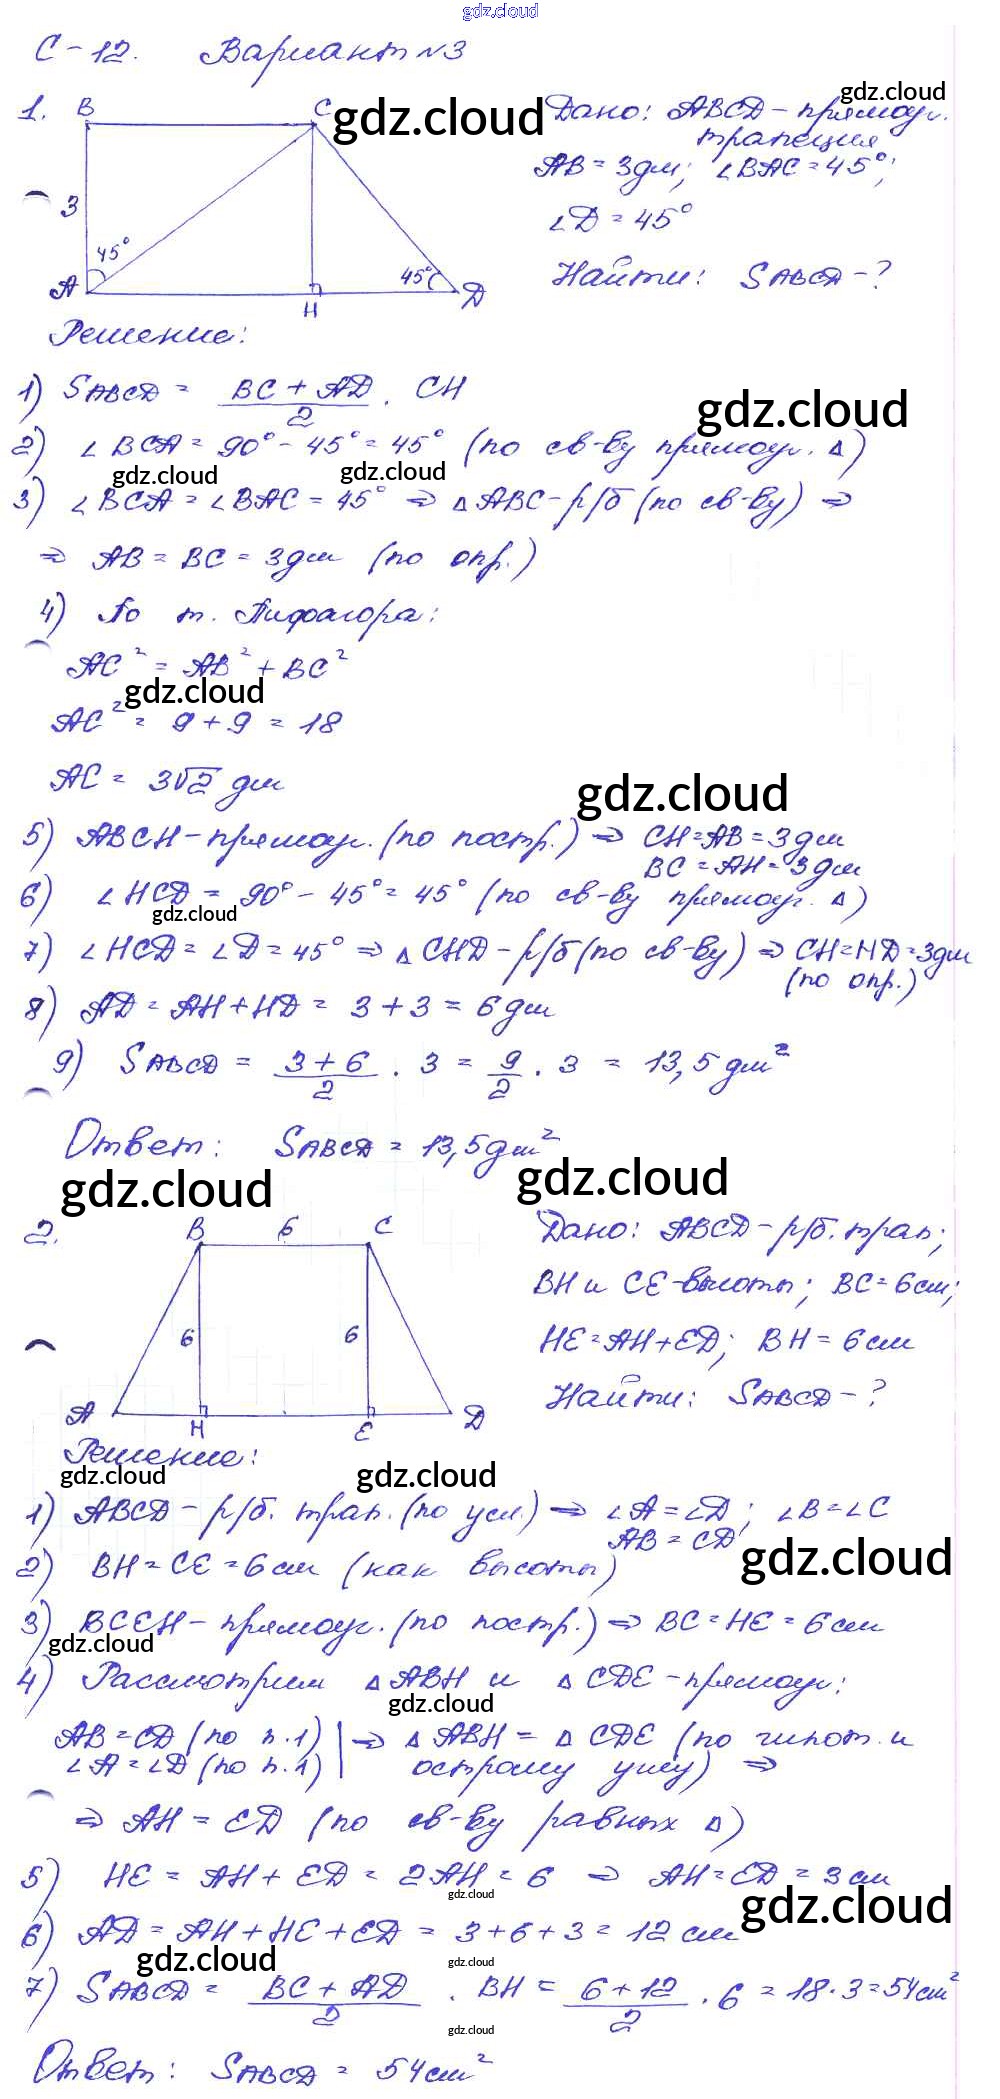 gdz.cloud
С-12. Вариант №3
1. B C gdz.cloud Дано: ABCD - прямоуг. gdz.cloud
трапеция
AB = 3дм; ∠BAC = 45°;
3
∠D = 45°
45° 45°
A H D
Найти: SABCD - ?
Решение:
1) SABCD = (BC + AD)/2 · CH gdz.cloud
2) ∠BCA = 90° - 45° = 45° (по св-ву прямоуг. Δ)
gdz.cloud gdz.cloud
3) ∠BCA = ∠BAC = 45° ⇒ ΔABC - р/б (по св-ву) ⇒
⇒ AB = BC = 3дм (по опр.)
4) По т. Пифагора:
AC² = AB² + BC²
gdz.cloud
AC² = 9 + 9 = 18
AC = 3√2 дм
gdz.cloud
5) ABCH - прямоуг. (по постр.) ⇒ CH = AB = 3дм
BC = AH = 3дм
6) ∠HCD = 90° - 45° = 45° (по св-ву прямоуг. Δ)
gdz.cloud
7) ∠HCD = ∠D = 45° ⇒ ΔCHD - р/б (по св-ву) ⇒ CH = HD = 3дм
(по опр.)
8) AD = AH + HD = 3 + 3 = 6дм
9) SABCD = (3 + 6)/2 · 3 = 9/2 · 3 = 13,5 дм²
Ответ: SABCD = 13,5дм²
gdz.cloud gdz.cloud
2. B 6 C Дано: ABCD - р/б. трап;
BH и CE - высоты; BC = 6см;
6 6 HE = AH + ED; BH = 6см
Найти: SABCD - ?
A H E D
Решение:
gdz.cloud gdz.cloud
1) ABCD - р/б. трап. (по усл.) ⇒ ∠A = ∠D; ∠B = ∠C
AB = CD gdz.cloud
2) BH = CE = 6см (как высоты)
3) BCEH - прямоуг. (по постр.) ⇒ BC = HE = 6см
gdz.cloud
4) Рассмотрим ΔABH и ΔCDE - прямоуг:
gdz.cloud
AB = CD (по п.1) | ⇒ ΔABH = ΔCDE (по гипот. и
∠A = ∠D (по п.1) | острому углу) ⇒
⇒ AH = ED (по св-ву равных Δ)
5) HE = AH + ED = 2AH = 6 ⇒ AH = ED = 3см
gdz.cloud gdz.cloud
6) AD = AH + HE + ED = 3 + 6 + 3 = 12 см
gdz.cloud gdz.cloud
7) SABCD = (BC + AD)/2 · BH = (6 + 12)/2 · 6 = 18 · 3 = 54см²
gdz.cloud
Ответ: SABCD = 54см²